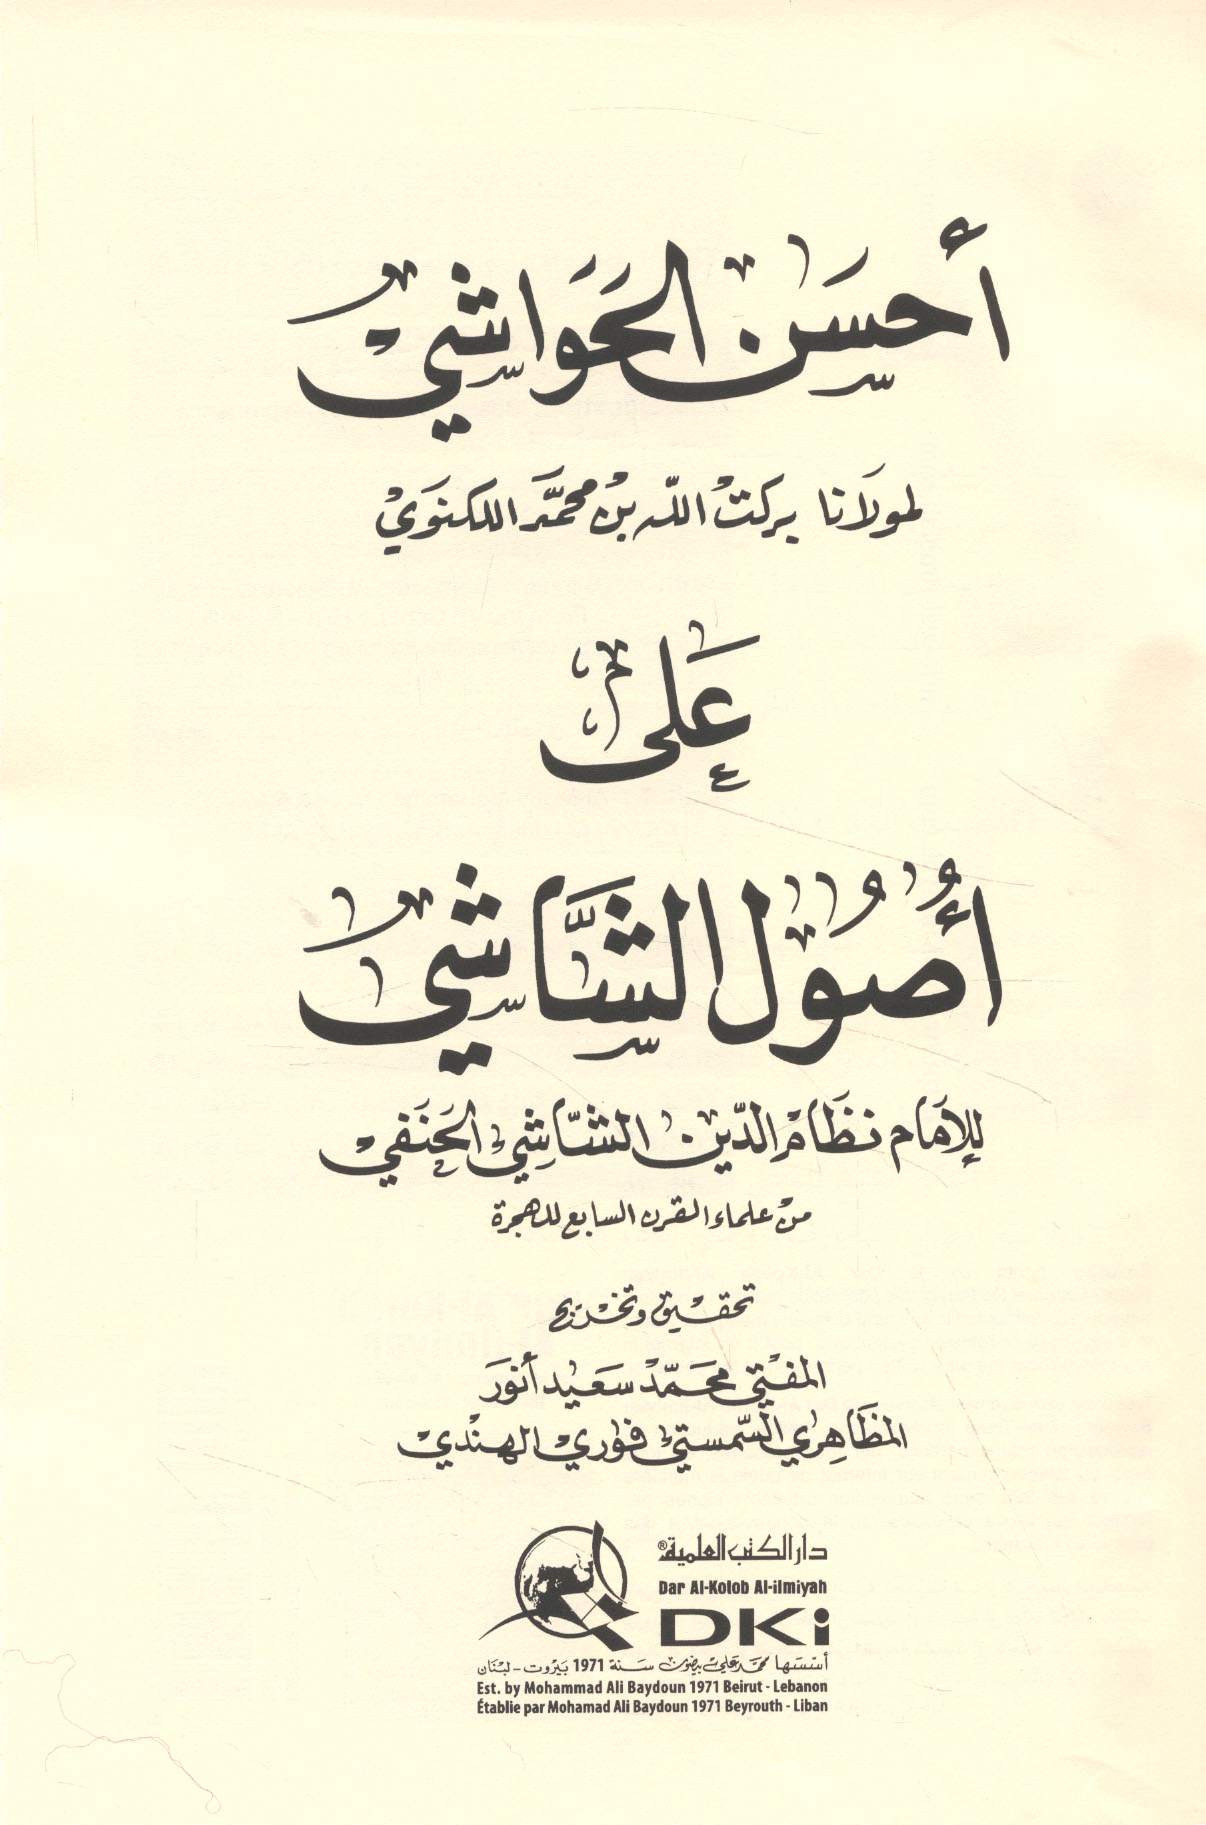 أحسن الحواشي
لمولانا بركت الله بن محمد اللكنوي
على
أصول الشاشي
للإمام نظام الدين الشاشي الحنفي
من علماء القرن السابع للهجرة
تحقيق وتخريج
المفتي محمد سعيد أنور
المظاهري السمستي فوري الهندي
دار الكتب العلمية®
Dar Al-Kotob Al-ilmiyah
DKi
أسسها محمد علي بيضون سنة 1971 بيروت - لبنان
Est. by Mohammad Ali Baydoun 1971 Beirut - Lebanon
Établie par Mohamad Ali Baydoun 1971 Beyrouth - Liban